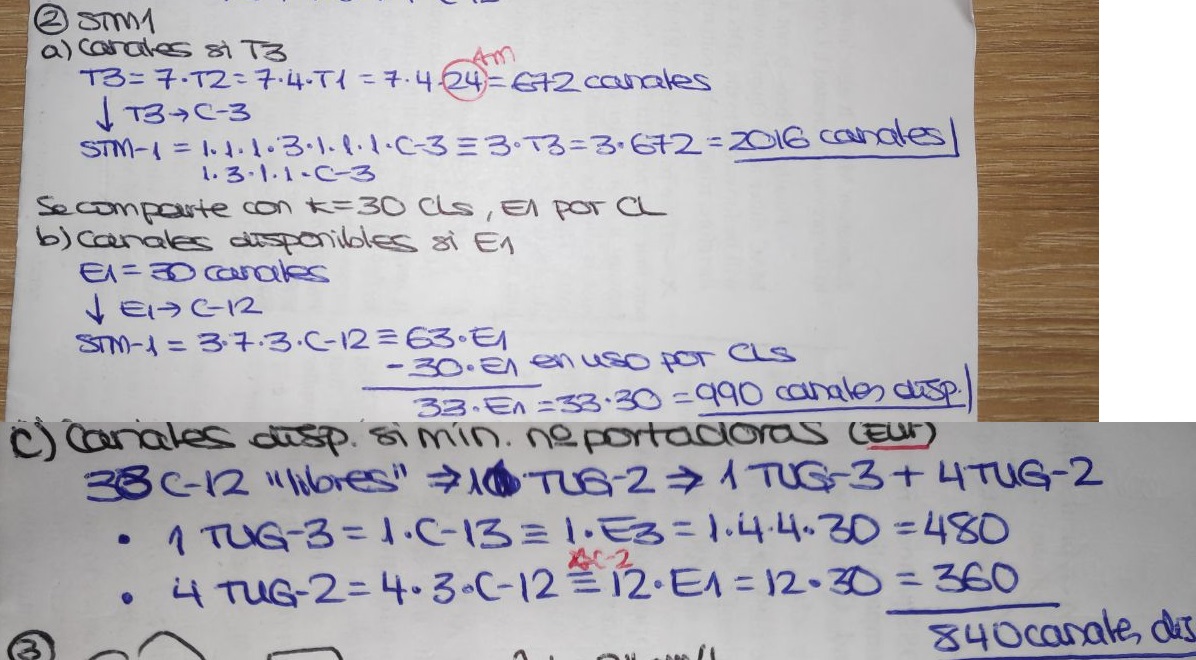 ② STM1
a) Canales si T3
Am
T3 = 7·T2 = 7·4·T1 = 7·4·24 = 672 canales
↓ T3→C-3
STM-1 = 1·1·1·3·1·1·1·C-3 ≡ 3·T3 = 3·672 = 2016 canales
1·3·1·1·C-3
Se comparte con k=30 CLs, E1 por CL
b) Canales disponibles si E1
E1 = 30 canales
↓ E1→C-12
STM-1 = 3·7·3·C-12 ≡ 63·E1
-30·E1 en uso por CLs
33·E1 = 33·30 = 990 canales disp.
c) Canales disp. si mín. nº portadoras (EUR)
33 C-12 "libres" ⇒ 1 TUG-2 ⇒ 1 TUG-3 + 4 TUG-2
· 1 TUG-3 = 1·C-13 ≡ 1·E3 = 1·4·4·30 = 480
C-2
· 4 TUG-2 = 4·3·C-12 ≡ 12·E1 = 12·30 = 360
840 canales dis
③